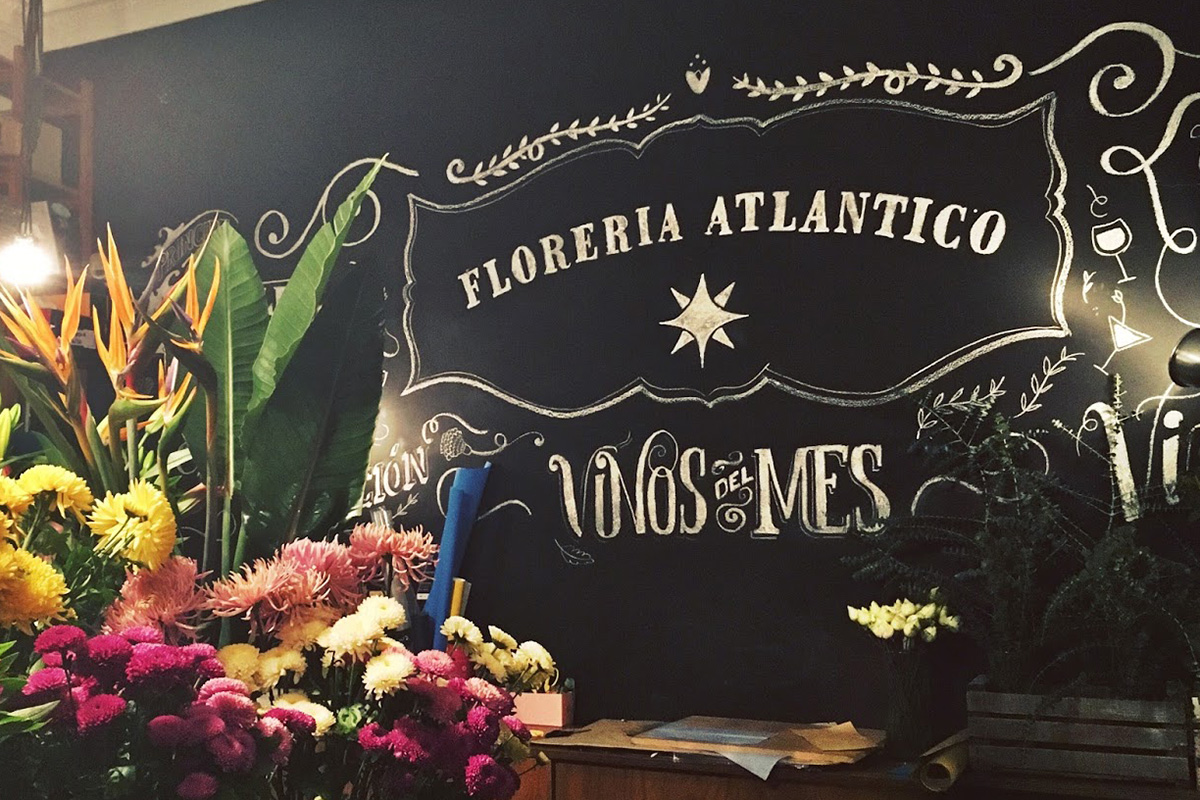 FLORERIA ATLANTICO
VINOS DEL MES